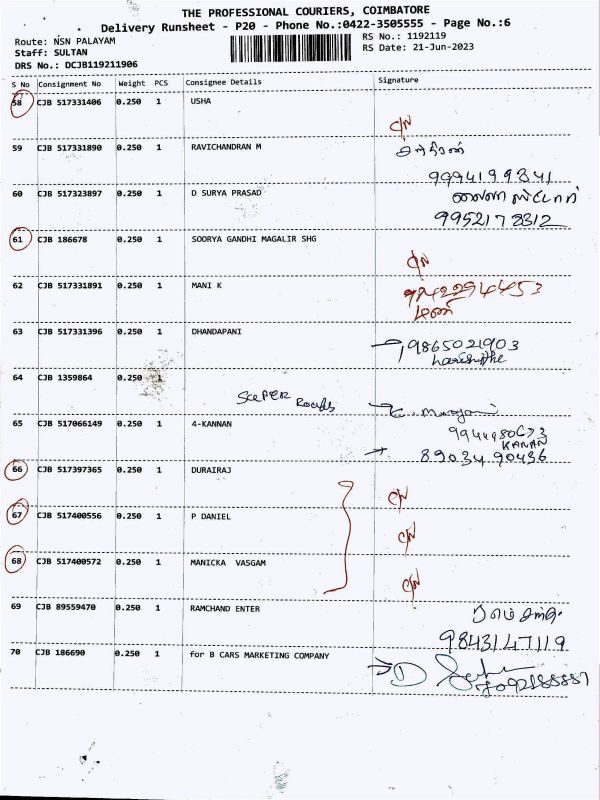 THE PROFESSIONAL COURIERS, COIMBATORE
Delivery Runsheet - P20 - Phone No.:0422-3505555 - Page No.:6
Route: NSN PALAYAM RS No.: 1192119
Staff: SULTAN RS Date: 21-Jun-2023
DRS No.: DCJB119211906
S No Consignment No Weight PCS Consignee Details Signature
58 CJB 517331406 0.250 1 USHA
C/N
59 CJB 517331890 0.250 1 RAVICHANDRAN M
9994199841
60 CJB 517323897 0.250 1 D SURYA PRASAD
9952178312
61 CJB 186678 0.250 1 SOORYA GANDHI MAGALIR SHG
C/N
62 CJB 517331891 0.250 1 MANI K 9842294453
மணி
63 CJB 517331396 0.250 1 DHANDAPANI
9865021903
64 CJB 1359864 0.250 1
SUPER Roofs
65 CJB 517066149 0.250 1 4-KANNAN
KANAN
89034 90436
66 CJB 517397365 0.250 1 DURAIRAJ
C/N
67 CJB 517400556 0.250 1 P DANIEL
C/N
68 CJB 517400572 0.250 1 MANICKA VASGAM
C/N
69 CJB 89559470 0.250 1 RAMCHAND ENTER
9843147119
70 CJB 186690 0.250 1 for B CARS MARKETING COMPANY